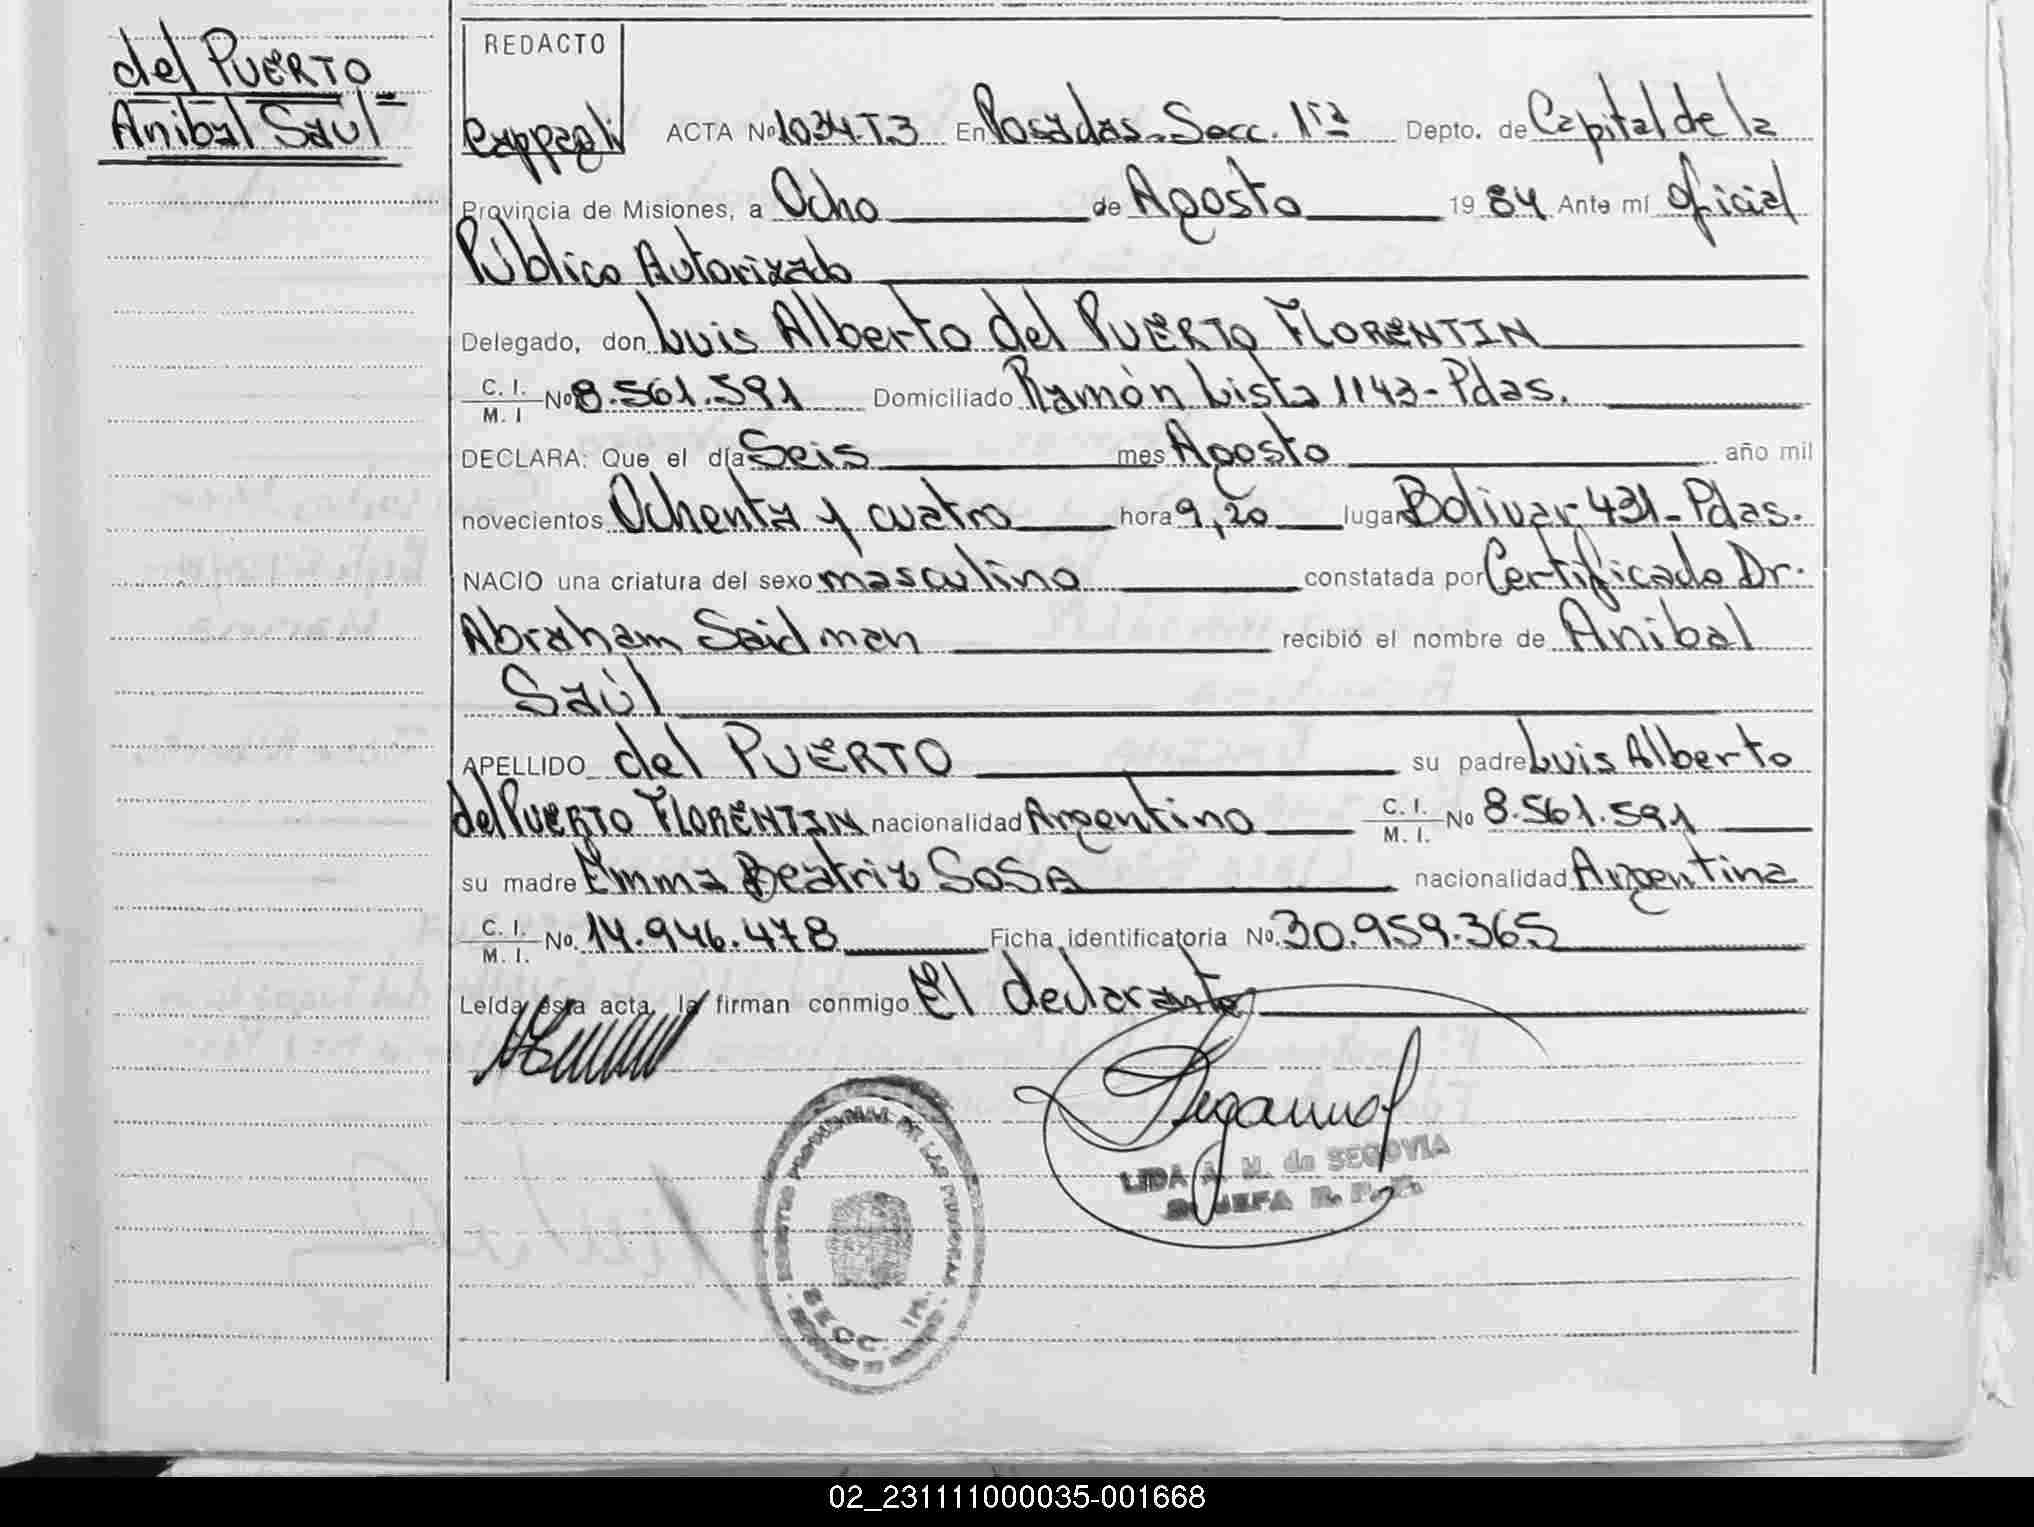 del PUERTO
Anibal Saúl
REDACTO
Cappagli
ACTA Nº 1034.T.3 En Posadas-Secc. 1ra Depto. de Capital de la
Provincia de Misiones, a Ocho de Agosto 1984 Ante mí Oficial
Público Autorizado
Delegado, don Luis Alberto del PUERTO FLORENTIN
C. I. / M. I Nº 8.561.591 Domiciliado Ramón Lista 1143-Pdas.
DECLARA: Que el día Seis mes Agosto año mil
novecientos Ochenta y cuatro hora 9,20 lugar Bolivar 431-Pdas.
NACIO una criatura del sexo masculino constatada por Certificado Dr.
Abraham Saidman recibió el nombre de Anibal
Saúl
APELLIDO del PUERTO su padre Luis Alberto
del PUERTO FLORENTIN nacionalidad Argentino C. I. / M. I. Nº 8.561.591
su madre Emma Beatriz SOSA nacionalidad Argentina
C. I. / M. I. Nº. 14.946.478 Ficha identificatoria Nº. 30.959.365
Leída esta acta, la firman conmigo El declarante
LIDA A. M. de SEGOVIA
PROVINCIAL DE LAS PERSONAS
SECC. 1ra.
02_231111000035-001668